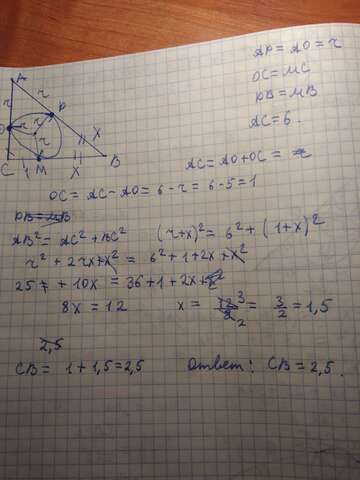 A
r
r
P
O
r
r
r
X
C
M
X
B
AP = AO = r
OC = MC
PB = MB
AC = 6.
AC = AO + OC =
OC = AC - AO = 6 - r = 6 - 5 = 1
PB = MB
AB² = AC² + BC² (r+x)² = 6² + (1+x)²
r² + 2rx + x² = 6² + 1 + 2x + x²
25 + 10x = 36 + 1 + 2x + x²
8x = 12 x = 12/8 = 3/2 = 1,5
2,5
CB = 1 + 1,5 = 2,5 Ответ: CB = 2,5.